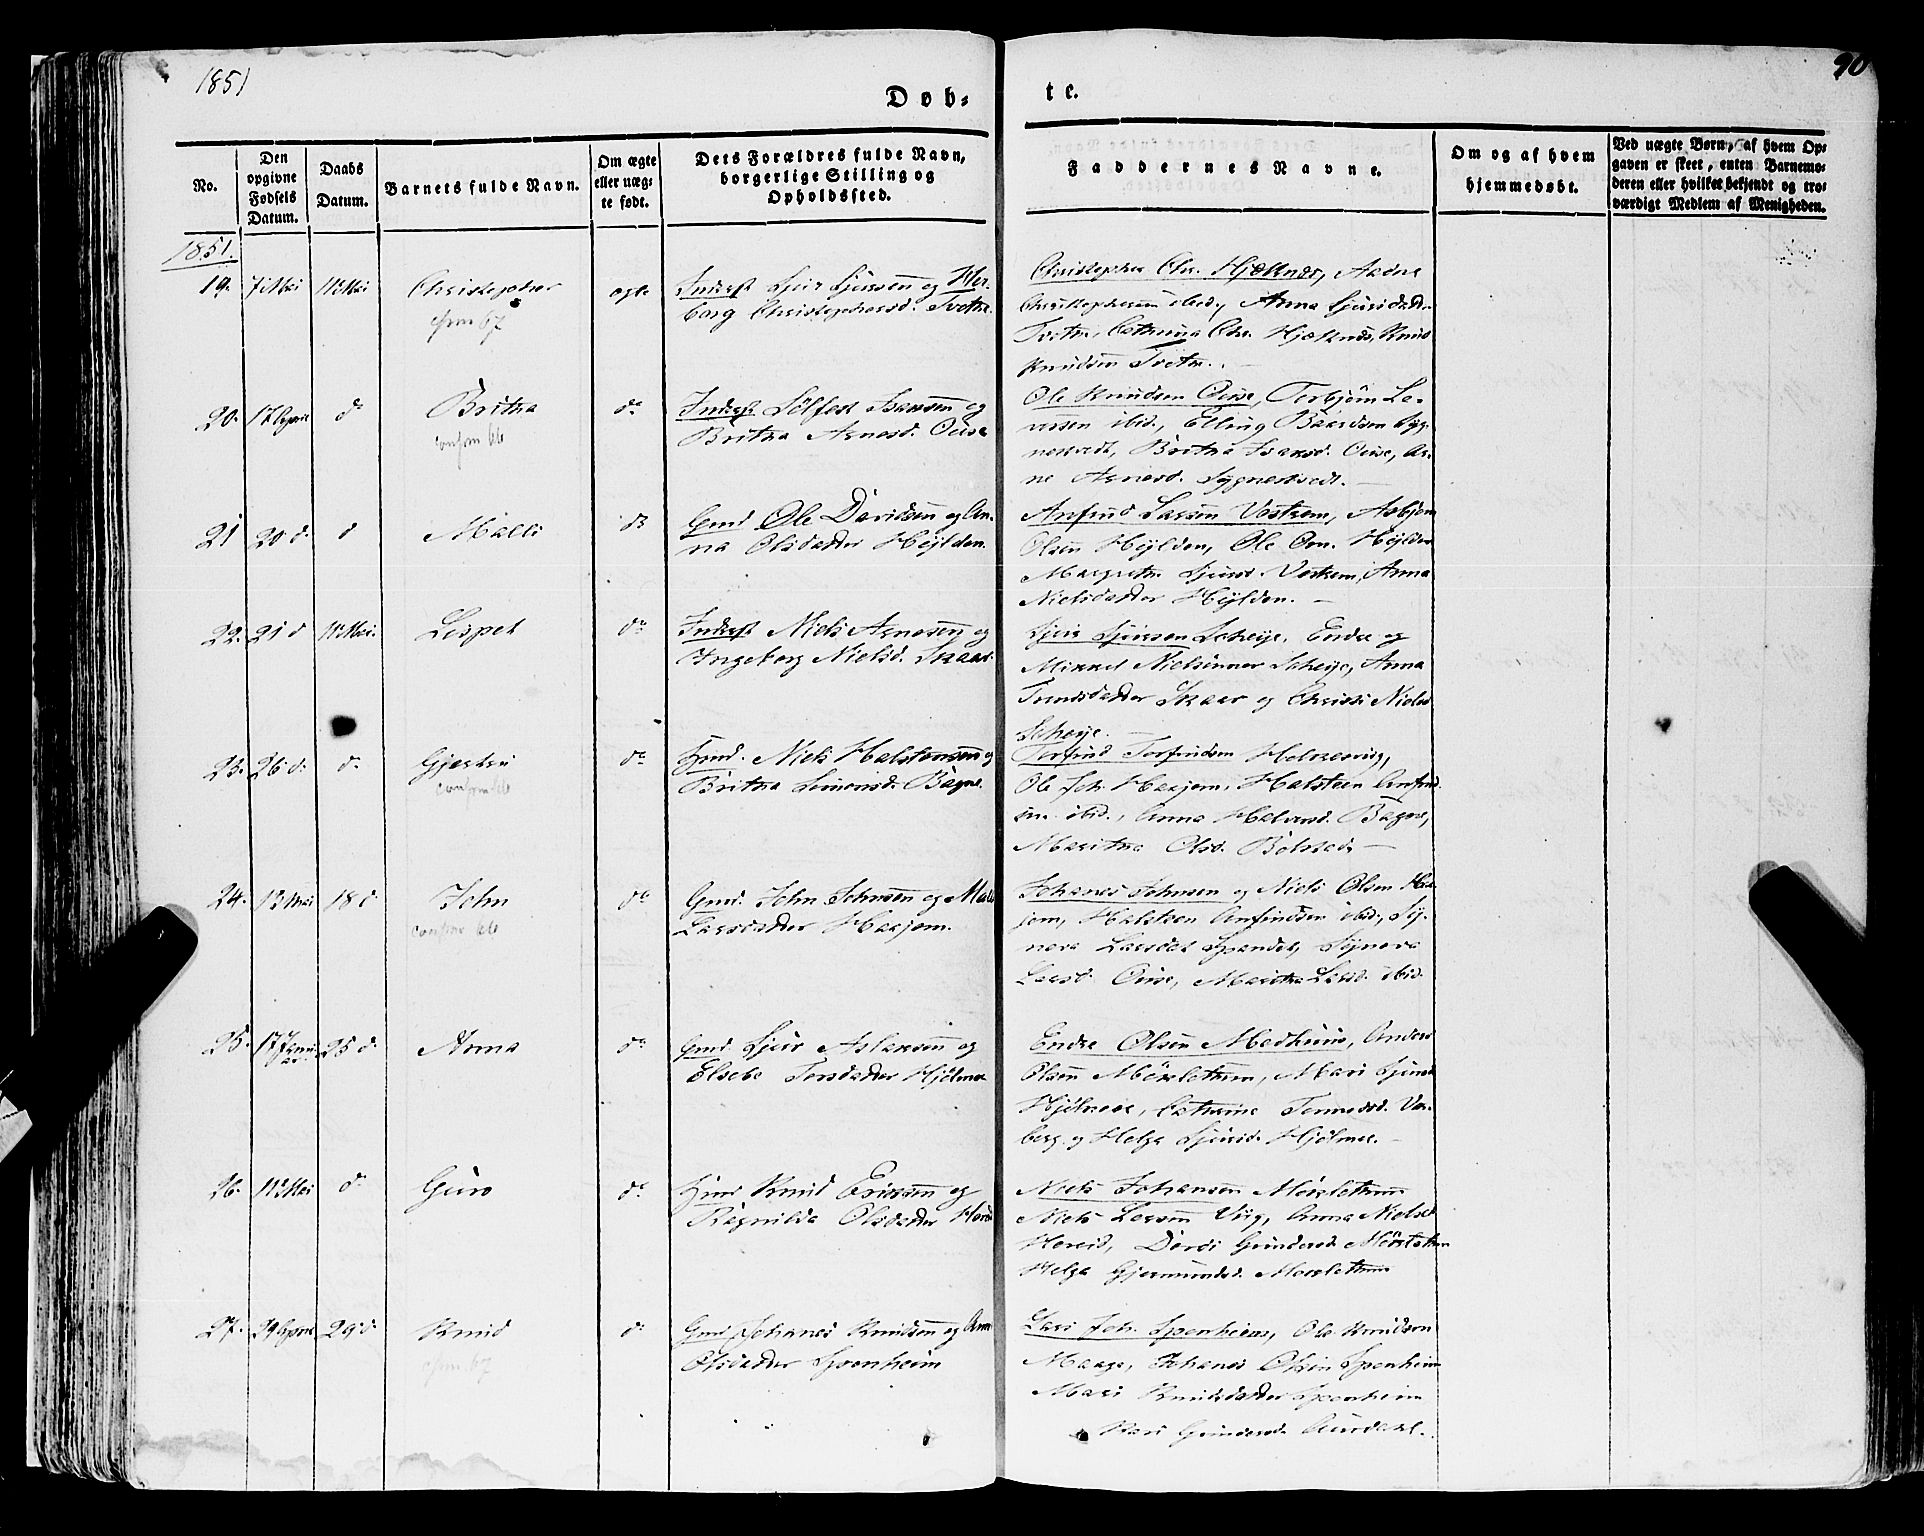 1851
90
Døb=
te.
No.
Den opgivne Fødsels Datum.
Daabs Datum.
Barnets fulde Navn.
Om ægte eller uæg= te født.
Dets Forældres fulde Navn, borgerlige Stilling og Opholdssted.
Faddernes Navne.
Om og af hvem hjemmedøbt.
Ved uægte Børn, af hvem Op= gaven er skeet, enten Barnemo= deren eller hvilket bekjendt og tro= værdigt Medlem af Menigheden.
1851.
19. 7 Mai 11 Mai Christopher ægte Inderst Sjur Sjursen og Her=
borg Christophersd. Tveitn.
Christopher Chr. Hjeltnæs, Aadne
Christophersen ibid., Anna Sjursdatt.
Tveitn, Cathrina Chr. Hjeltnæs, Knud
Knudsen Tveitn.
20. 17 April do Britha do Inderst Sølfest Isaksen og
confirm 66
Britha Arnesd. Ouse
Ole Knudsen Ouse, Torbjørn La=
ssen ibid., Elling Baardsen Syg=
nestvedt, Britha Isaksd. Ouse, Ar=
ne Arnesd. Sygnestvedt.
21 20 do do Malli do Gmd Ole Davidsen og An=
na Olsdatter Hylden.
Anfind Larsen Vestrem, Asbjørn
Olsen Hylden, Ole Hylden
Margretha Sjursd. Vestrem, Anna
Nielsdatter Hylden.
22. 21 do 11 Mai Lispet do Inderst Niels Arnesen og
Ingeborg Nielsd. Skaar.
Sjur Sjursen Scheije, Endre og
Mikkel Nielsønner Scheije, Anna
Skaar og Christi Nielsd
Scheije.
23. 26 do do Gjertru do Hmd. Niels Halstensen og
Britha Simonsd. Bagne.
Torfind Torfindsen
Ole Joh. Haajem, Halsteen Anfind=
sen ibid., Anna Halvorsd. Bagne,
Maritha Olsd. Bolstad
24. 13 Mai 18 do John do Gmd. John Johnsen og Malli
Larsdatter Haajem.
Johanes Johnsen og Niels Olsen Haa=
jem, Halsteen Anfindsen ibid., Sy=
neva Larsdat Spandet, Syneva
Larsd. Ouse, Maritha Larsd. ibid.
25. 17 Januar 25 do Anna do Gmd Sjur Aslaksen og
Elsebe Torsdatter Hjølmoe
Endre Olsen Medhuus, Anders
Olsen Mørklethun, Mari Sjursd
Hjølmoe, Cathrine Tormodsd. Va=
berg og Helga Sjursd. Hjølmoe.
26. 11 Mai do Guro do Hmd Knud Ericksen og
Ragnilda Olsdatter
Niels Johansen Mørklethun
Niels Larsen Viig, Anna Nielsd
Hereid, Dordi Gundersd. Mørkletthun
Helga Gjermundsd. Mørklethun
27. 29 April 29 do Knud do Gmd Johanes Knudsen og Anna
Olsdatter Sponheim
Lars Joh. Sponheim, Ole Knudsen
Maage, Johanes Olsen Sponheim
Mari Knudsdatter Sponheim
Kari Gundersd.